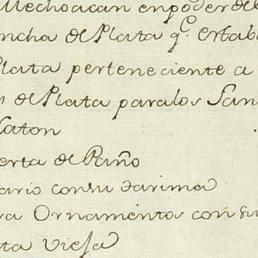 Mechoacan enpoder de
ncha de Plata q.e estab
Plata perteneciente a
de Plata paralos San
laton
erta de Paño
ario consu tarima
va Ornamentos consu
ta vieja